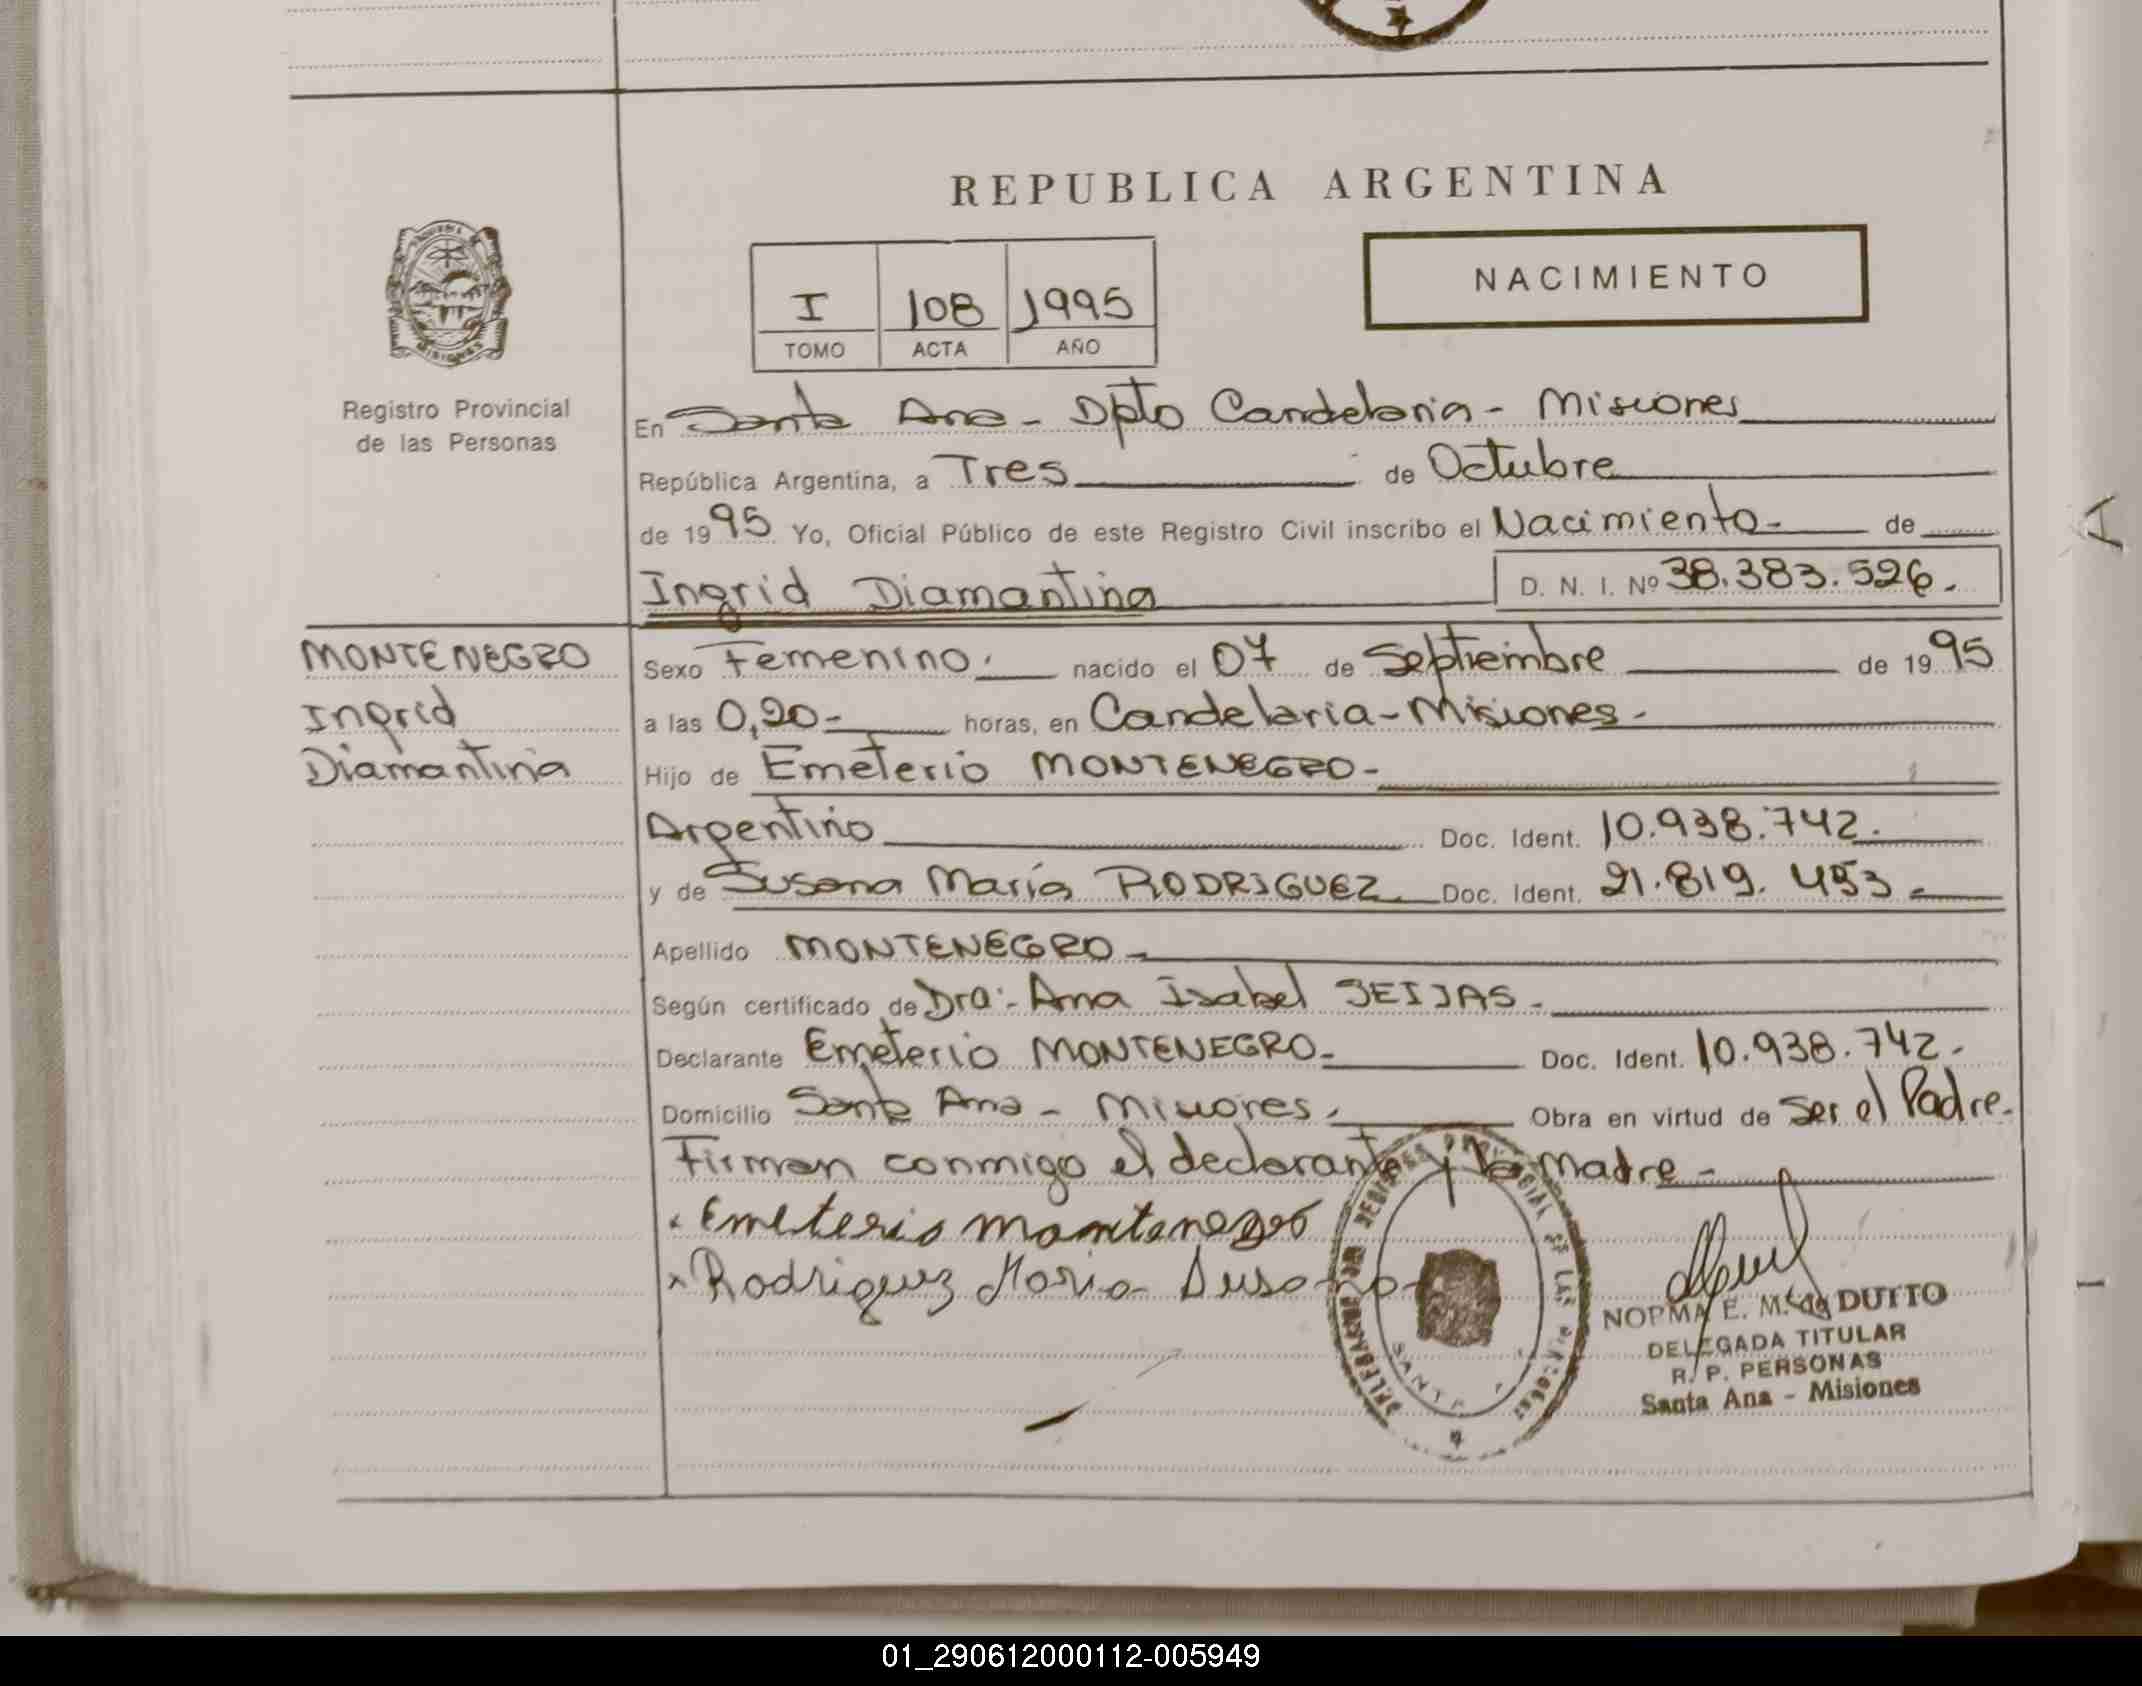 REPUBLICA ARGENTINA
NACIMIENTO
I 108 1995
TOMO ACTA AÑO
MISIONES
Registro Provincial
de las Personas
En Santa Ana - Dpto Candelaria - Misiones
República Argentina, a Tres de Octubre
de 1995 Yo, Oficial Público de este Registro Civil inscribo el Nacimiento - de
Ingrid Diamantina D. N. I. Nº 38.383.526.
MONTENEGRO
Ingrid
Diamantina
Sexo Femenino. nacido el 07 de Septiembre de 1995
a las 0,20- horas, en Candelaria - Misiones -
Hijo de Emeterio MONTENEGRO -
Argentino Doc. Ident. 10.938.742.
y de Susana María RODRIGUEZ Doc. Ident. 21.819.453 -
Apellido MONTENEGRO -
Según certificado de Dra:- Ana Isabel SEIJAS -
Declarante Emeterio MONTENEGRO - Doc. Ident. 10.938.742 -
Domicilio Santa Ana - Misiones. Obra en virtud de Ser el Padre.
Firman conmigo el declarante y la Madre -
x Emeterio montenegro
x Rodriguez Maria Susana
SANTA
NORMA E. M. de DUTTO
DELEGADA TITULAR
R. P. PERSONAS
Santa Ana - Misiones
01_290612000112-005949